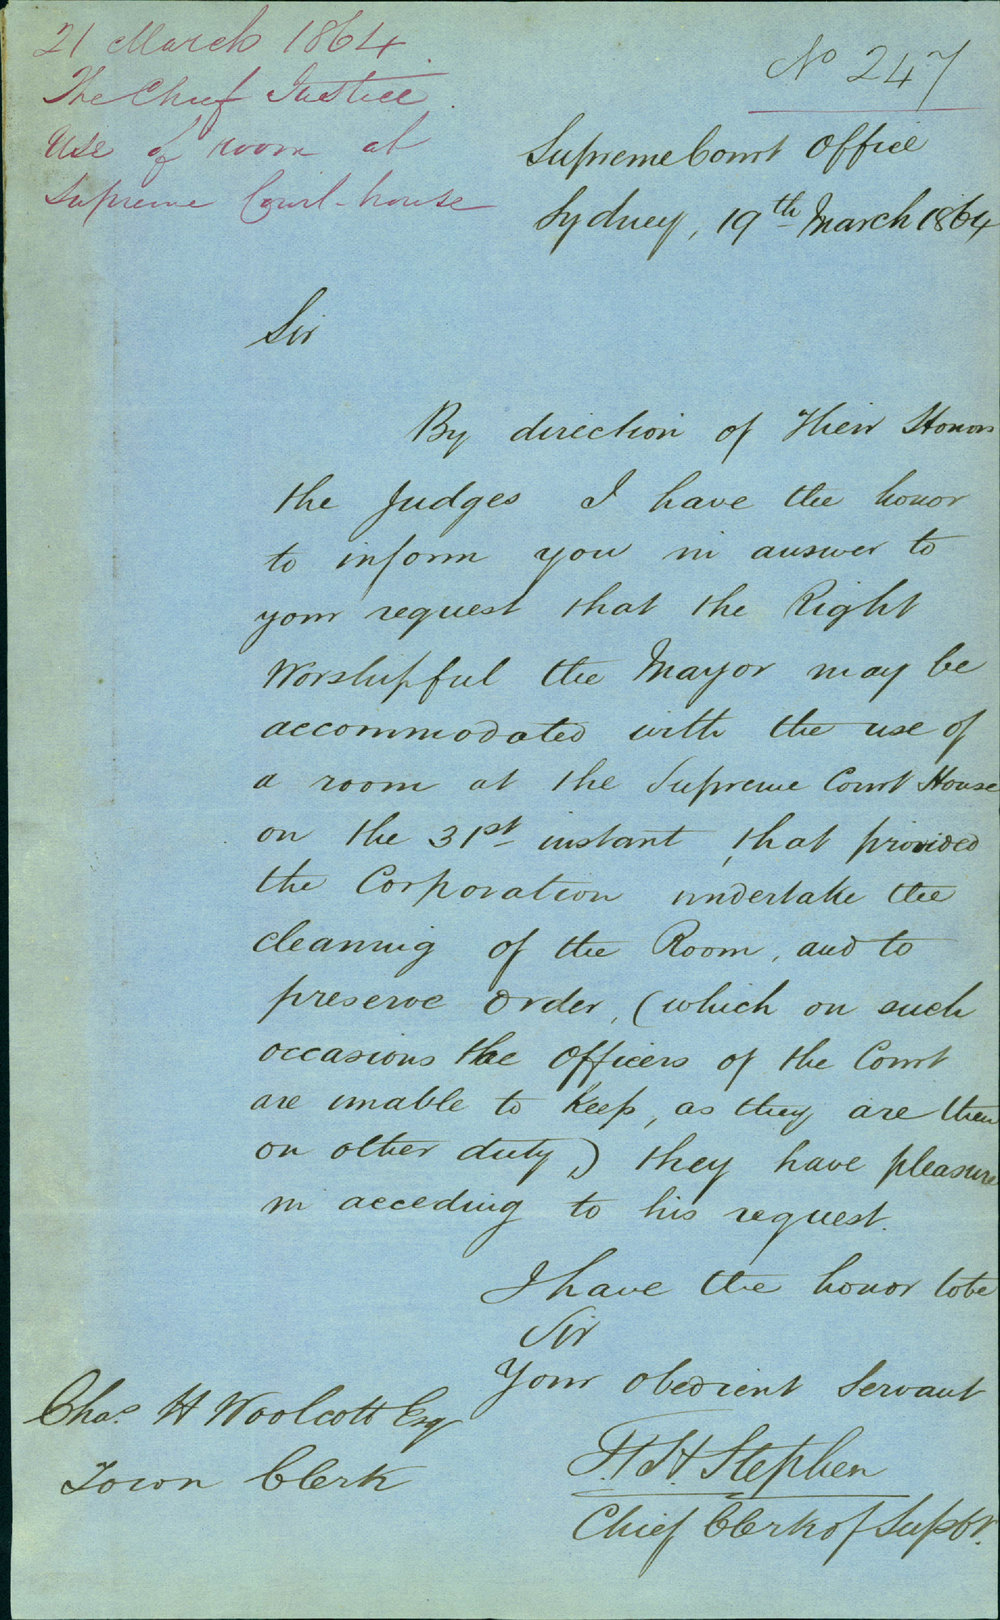 21 March 1864
The Chief Justice
Use of room at
Supreme Court-house
No 247
Supreme Court Office
Sydney, 19th March 1864
Sir
By direction of Their Honors
the Judges I have the honor
to inform you in answer to
your request that the Right
Worshipful the Mayor may be
accommodated with the use of
a room at the Supreme Court House
on the 31st instant, that provided
the Corporation undertake the
cleaning of the Room, and to
preserve order, (which on such
occasions the officers of the Court
are unable to keep, as they are then
on other duty) they have pleasure
in acceding to his request.
I have the honor to be
Sir
Your obedient Servant
Chas. H Woolcott Esq
Town Clerk
H. Stephen
Chief Clerk of Sup Ct.